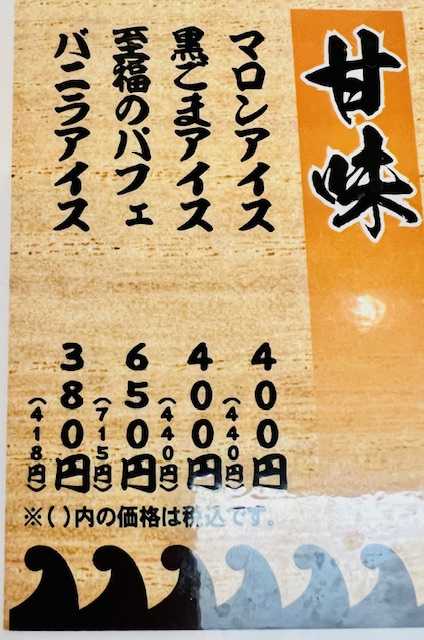 甘味
マロンアイス 400円
(440円)
黒ごまアイス 400円
(440円)
至福のパフェ 650円
(715円)
バニラアイス 380円
(418円)
※()内の価格は税込です。